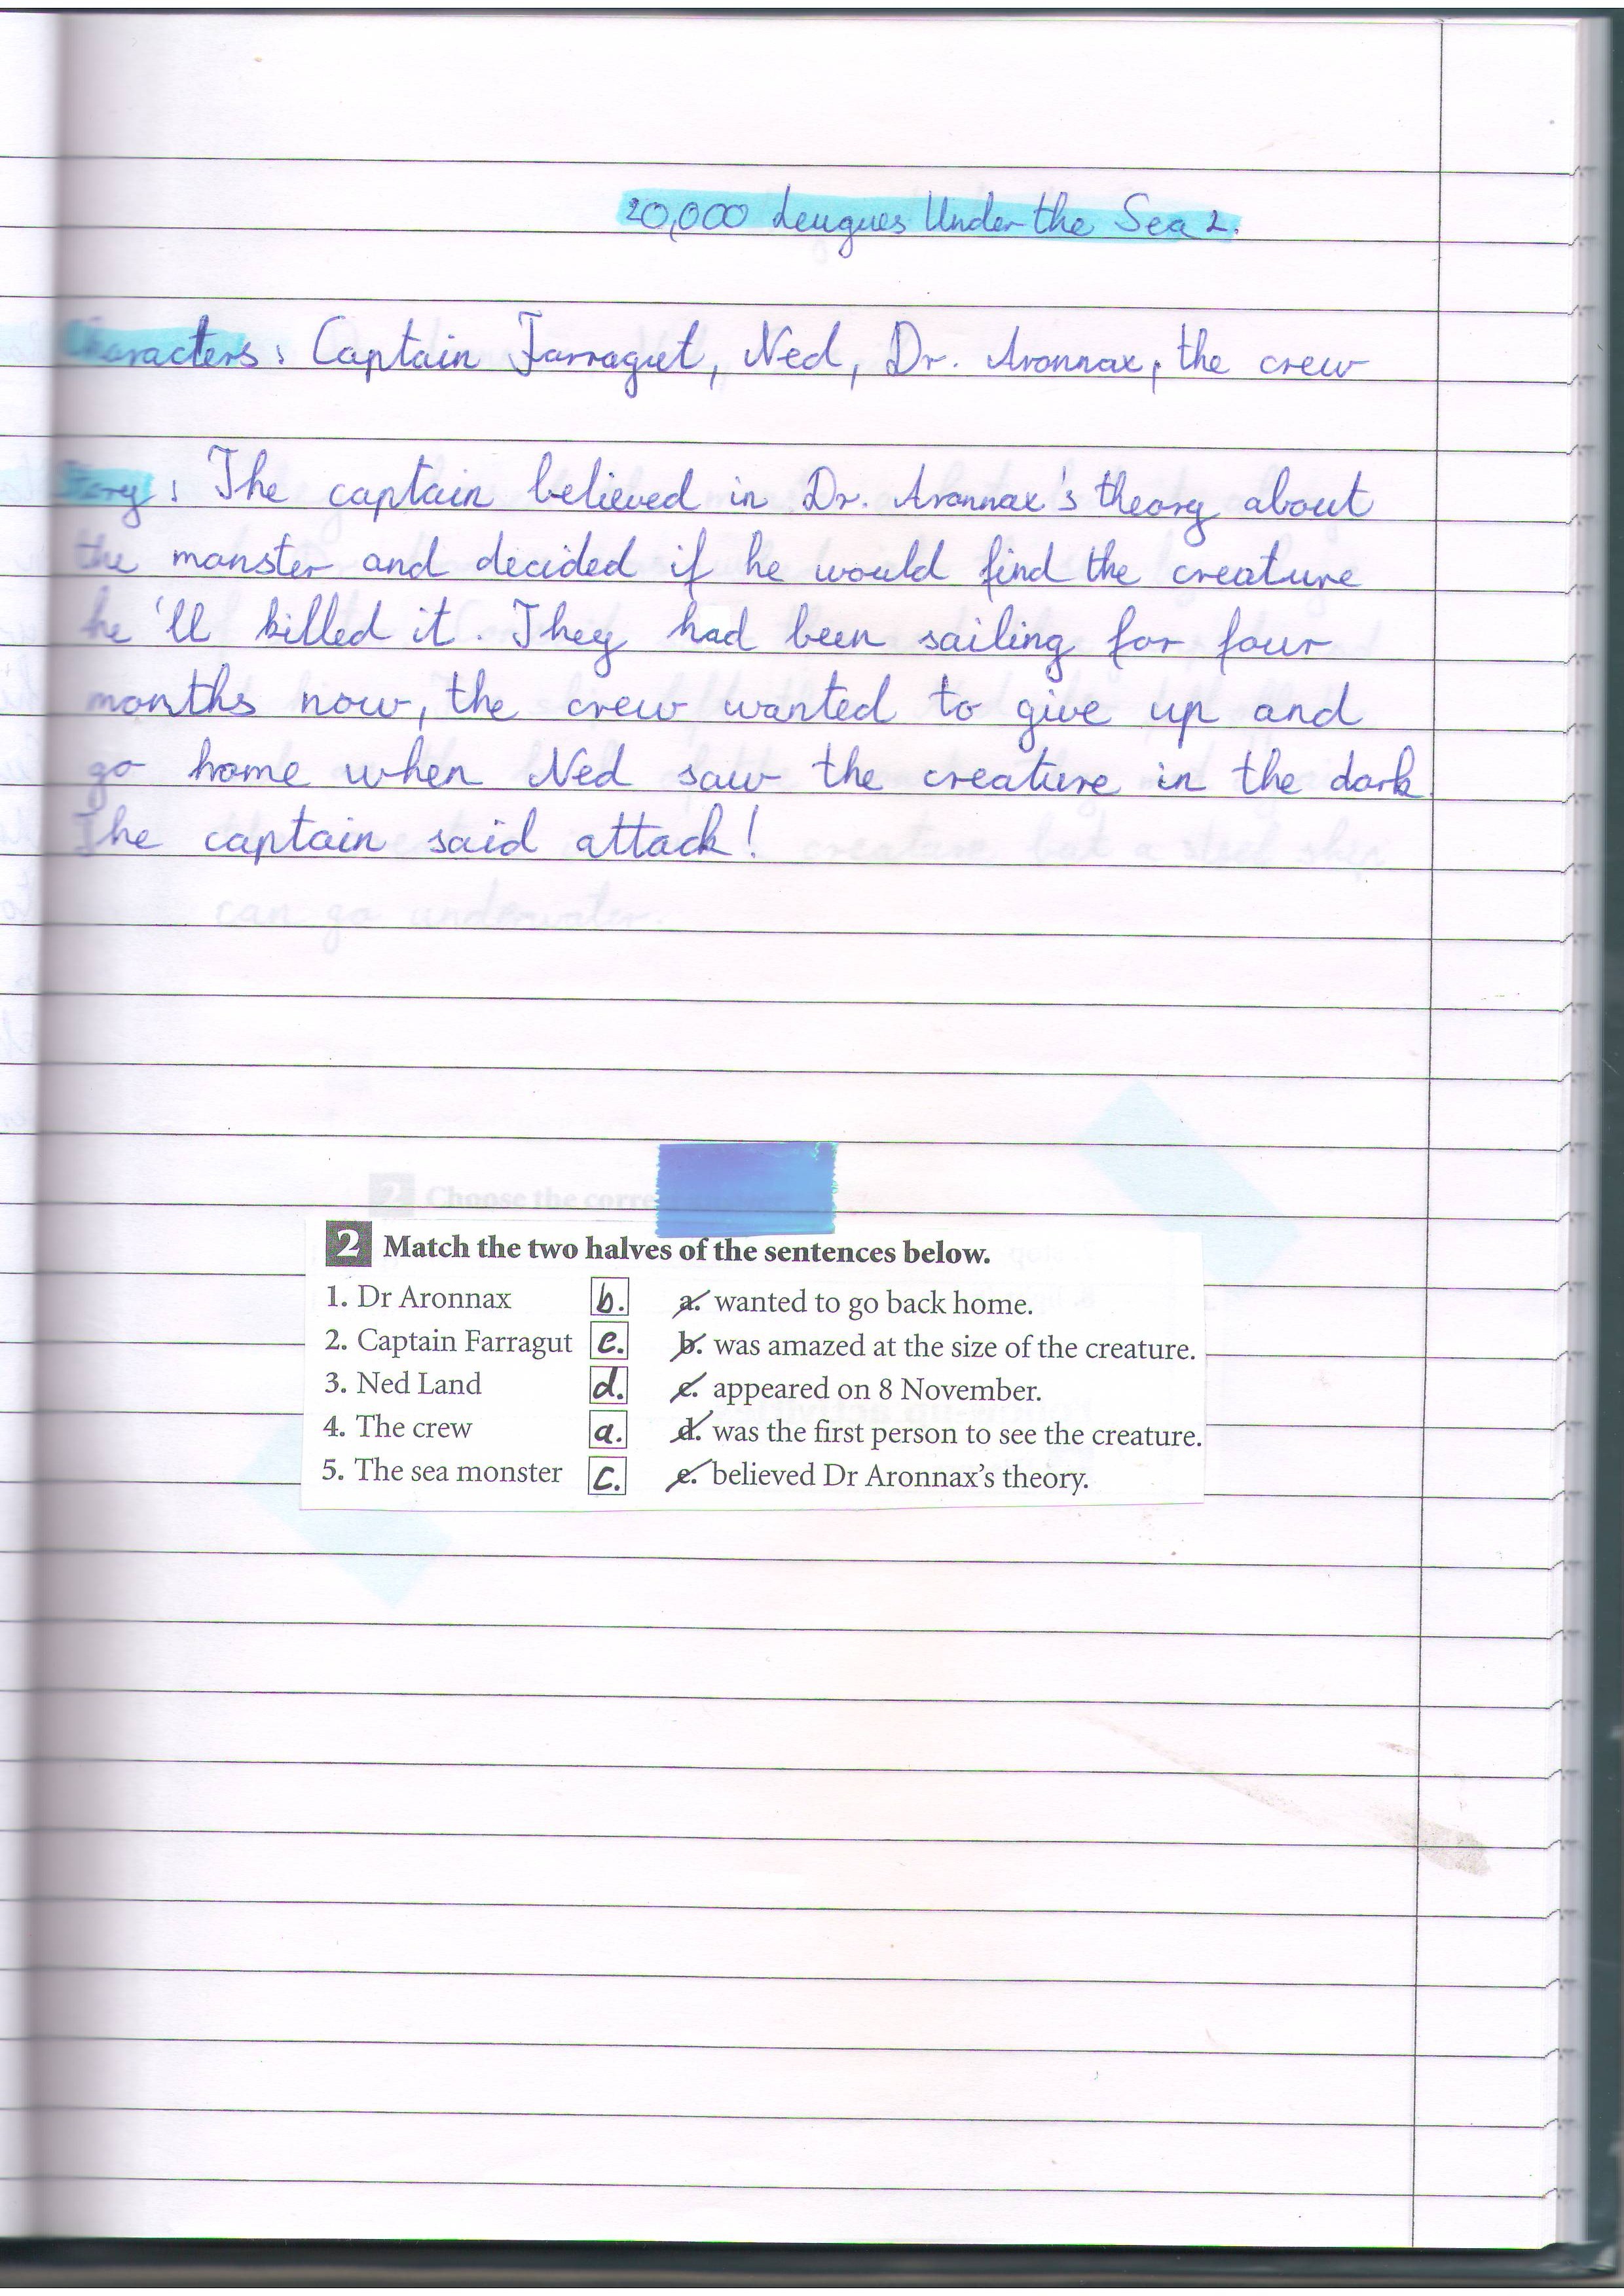 20,000 Leugues Under the Sea 2.
Characters: Captain Farragut, Ned, Dr. Aronnax, the crew
Story: The captain believed in Dr. Aronnax's theory about
the monster and decided if he would find the creature
he'll killed it. They had been sailing for four
months now, the crew wanted to give up and
go home when Ned saw the creature in the dark.
The captain said attack!
can go underwater.
2 Choose the corre
2 Match the two halves of the sentences below.
1. Dr Aronnax b. a. wanted to go back home.
2. Captain Farragut e. b. was amazed at the size of the creature.
3. Ned Land d. c. appeared on 8 November.
4. The crew a. d. was the first person to see the creature.
5. The sea monster c. e. believed Dr Aronnax's theory.